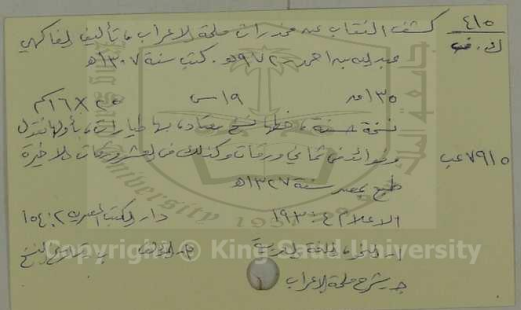 ٤١٥
ك.ف
كشف النقاب عن مخدرات ملحة الاعراب، تأليف الفاكهي
عبدالله بن احمد - ٩٧٢هـ. كتب سنة ١٣٠٧هـ
١٣٥ ق ١٩ س ١٦×
نسخة حسنة، خطها نسخ معتاد، بها طيارات، بأولها نقول
٧٩١٥ وفوائد في ثماني ورقات وكذلك في العشر ورقات الاخيرة
طبع بمصر سنة ١٣٢٧هـ
الاعلام ٤: ١٩٣ دار الكتب المصرية ٢: ١٥٤
أ. المؤلف ب. تاريخ النسخ
جـ. شرح ملحة الاعراب
Copyright © King Saud University